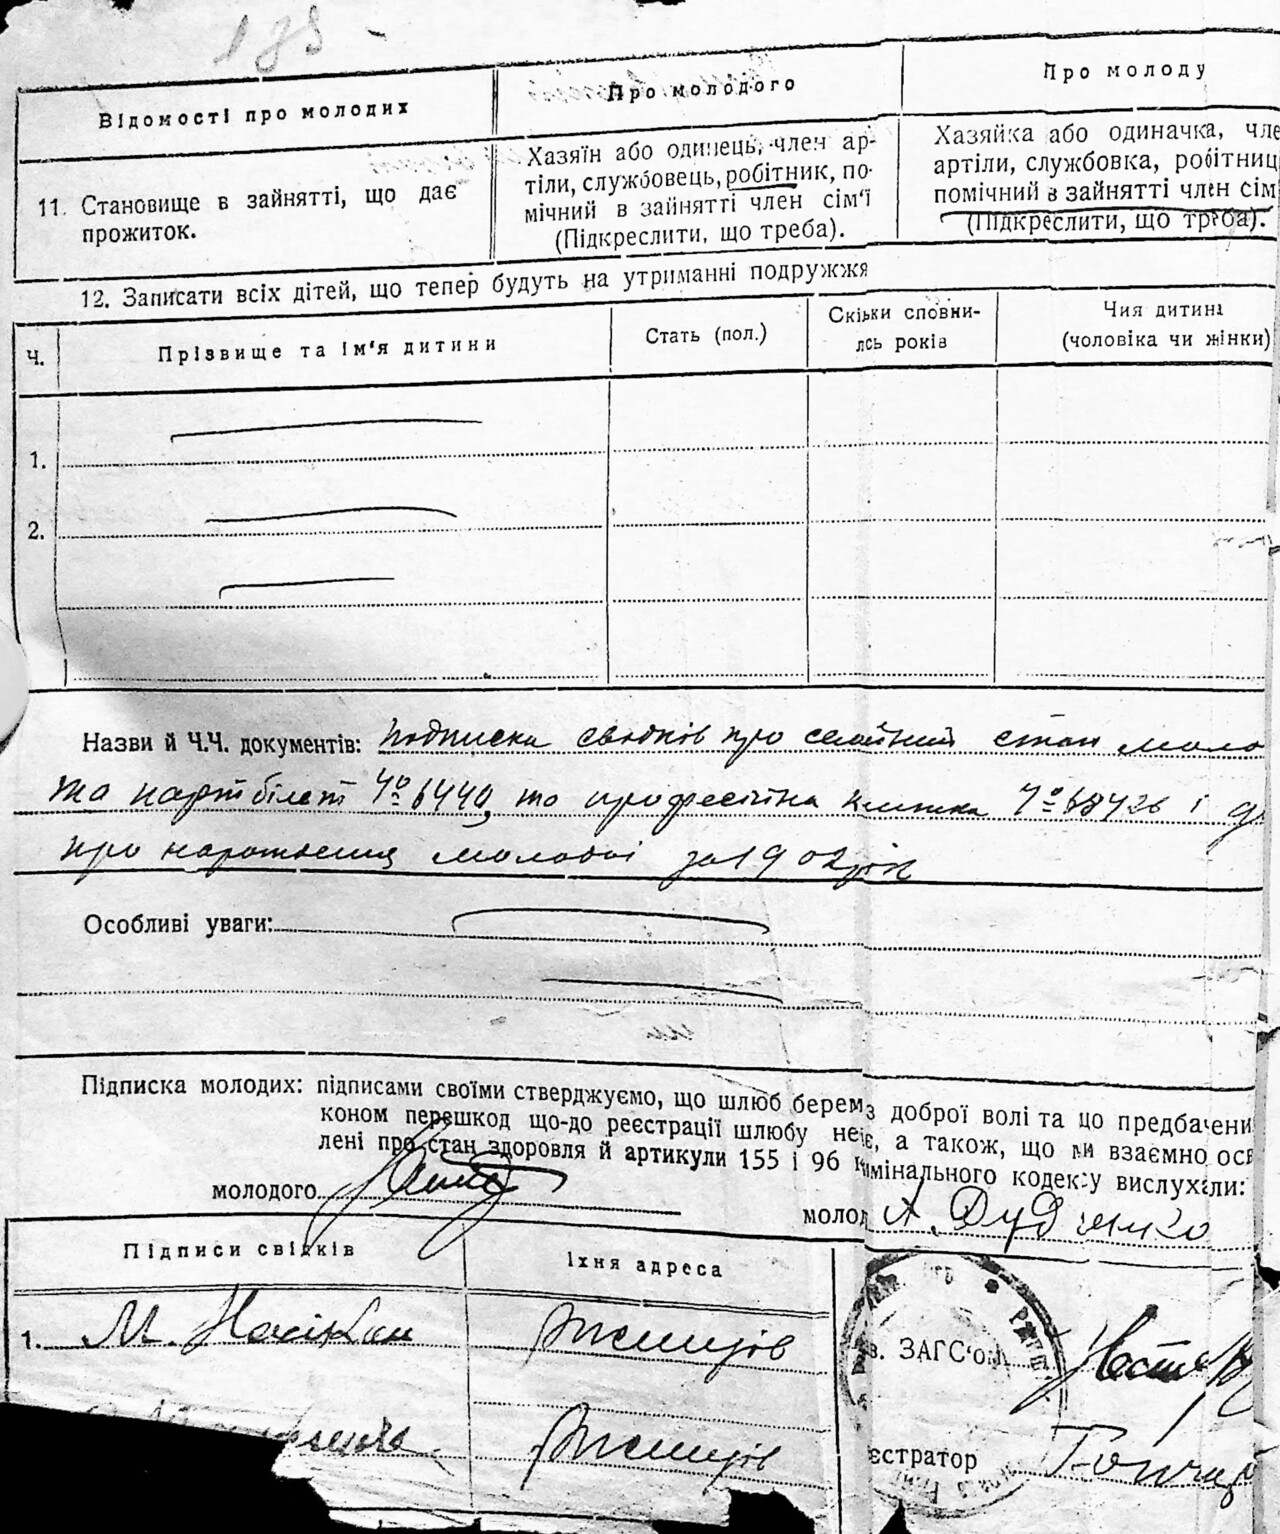 Відомості про молодих
Про молодого
Про молоду
11. Становище в зайнятті, що дає
прожиток.
Хазяїн або одинець, член ар-
тіли, службовець, робітник, по-
мічний в зайнятті член сім'ї
(Підкреслити, що треба).
Хазяйка або одиначка, чле
артіли, службовка, робітниц
помічний в зайнятті член сім'
(Підкреслити, що треба).
12. Записати всіх дітей, що тепер будуть на утриманні подружжя
Ч.
Прізвище та ім'я дитини
Стать (пол.)
Скільки сповни-
лсь років
Чия дитина
(чоловіка чи жінки)
1.
2.
Назви й Ч.Ч. документів: подписка свідків про семейний стан моло
та партбілет № 6440, та професійна книжка і
про народження молодої за 1902 рік
Особливі уваги:
Підписка молодих: підписами своїми стверджуємо, що шлюб берем з доброї волі та що предбачени
коном перешкод що-до реєстрації шлюбу не є, а також, що ми взаємно осв
лені про стан здоровля й артикули 155 і 96 к мінального кодексу вислухали:
молодого
молод А. Дудченко
Підписи свідків
Їхня адреса
1. М. Носікан Ржищів
в. ЗАГС'ом
Ржищів
єстратор Гончар